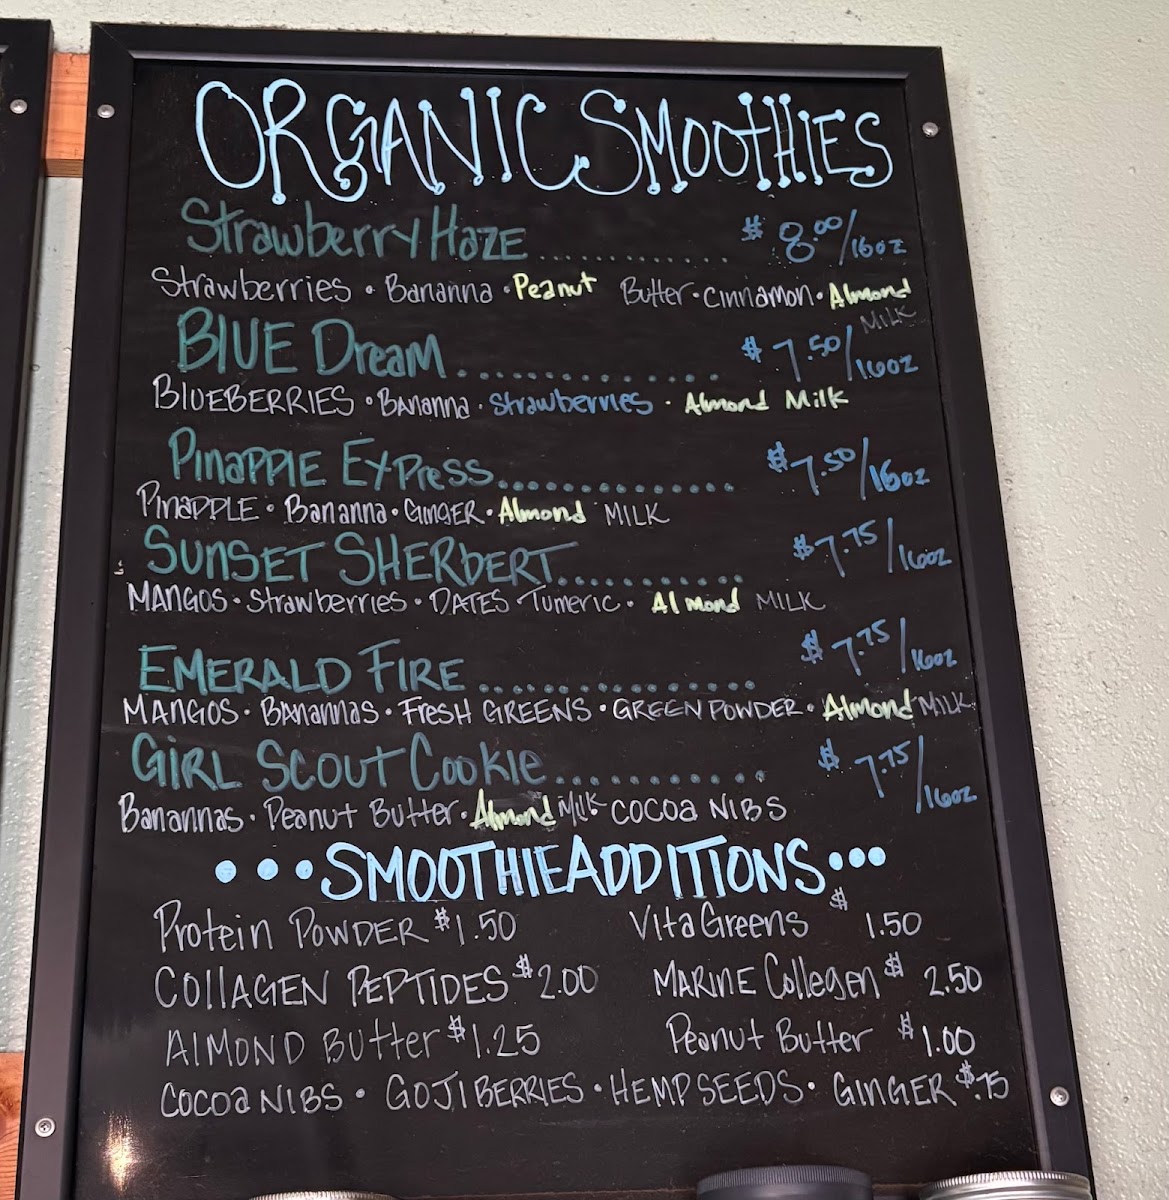 ORGANIC SMOOTHIES
Strawberry Haze ............. $8.00/16oz
Strawberries • Bananna • Peanut Butter • Cinnamon • Almond
MILK
BLUE Dream ............... $7.50/16oz
BLUEBERRIES • Bananna • Strawberries • Almond Milk
PINAPPLE EXPRESS .............. $7.50/16oz
PINAPPLE • Bananna • GINGER • Almond MILK
SUNSET SHERbERT ............ $7.75/16oz
MANGOS • Strawberries • DATES • Tumeric • Almond MILK
EMERALD FIRE .............. $7.75/16oz
MANGOS • BAnannas • Fresh GREENS • GREEN POWDER • Almond MILK
GIRL SCOUT Cookie ............ $7.75/16oz
Banannas • Peanut Butter • Almond Milk COCOA NIBS
•••SMOOTHIE ADDITIONS•••
Protein POWDER $1.50 Vita Greens $1.50
COLLAGEN PEPTIDES $2.00 MARINE Collegen $2.50
ALMOND Butter $1.25 Peanut Butter $1.00
COCOA NIBS • GOJI BERRIES • HEMP SEEDS • GINGER $.75